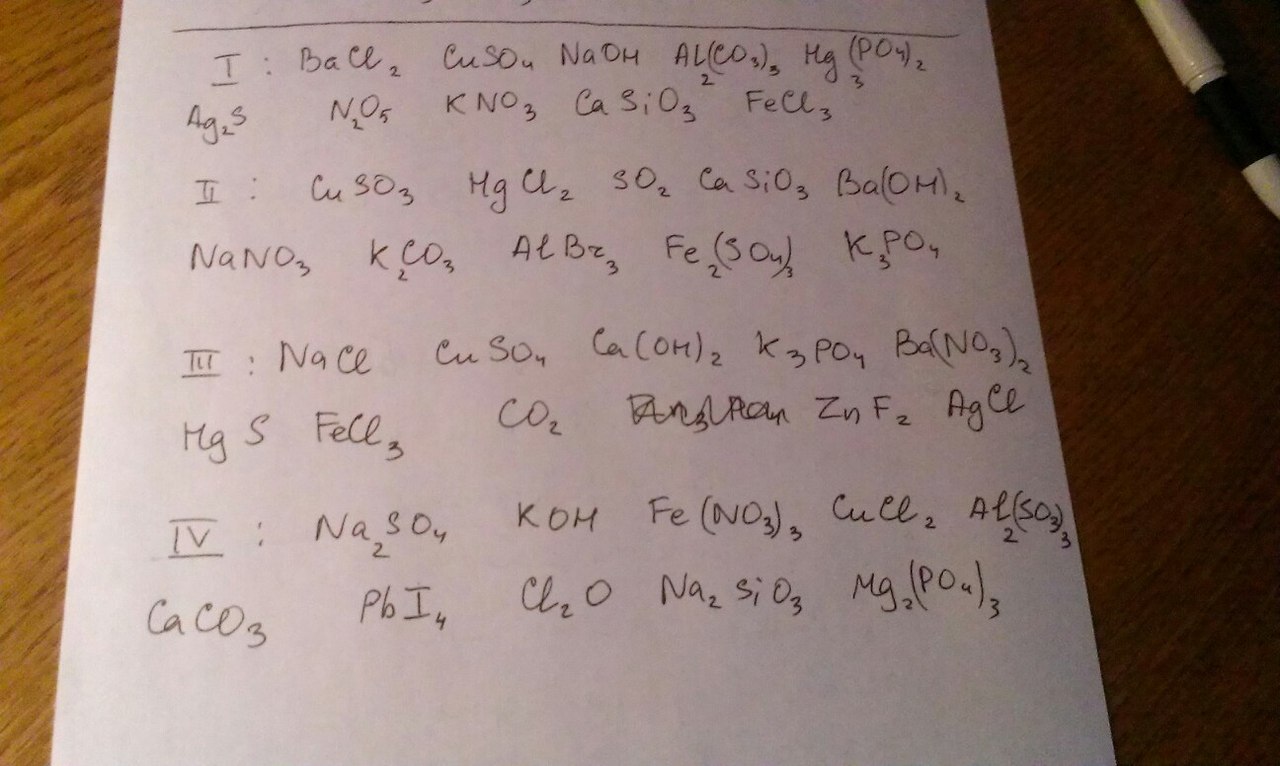 I : BaCl₂ CuSO₄ NaOH Al₂(CO₃)₃ Mg₃(PO₄)₂
Ag₂S N₂O₅ KNO₃ CaSiO₃ FeCl₃
II : CuSO₃ MgCl₂ SO₂ CaSiO₃ Ba(OH)₂
NaNO₃ K₂CO₃ AlBr₃ Fe₂(SO₄)₃ K₃PO₄
III : NaCl CuSO₄ Ca(OH)₂ K₃PO₄ Ba(NO₃)₂
MgS FeCl₃ CO₂ ZnF₂ AgCl
IV : Na₂SO₄ KOH Fe(NO₃)₃ CuCl₂ Al₂(SO₃)₃
CaCO₃ PbI₄ Cl₂O Na₂SiO₃ Mg₂(PO₄)₃